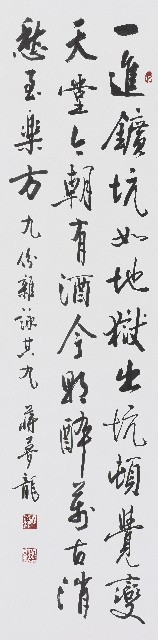 一進鑛坑如地獄出坑頓覺變
天堂今朝有酒今朝醉萬古消
愁至樂方 九份雜詠其九 蔣夢龍